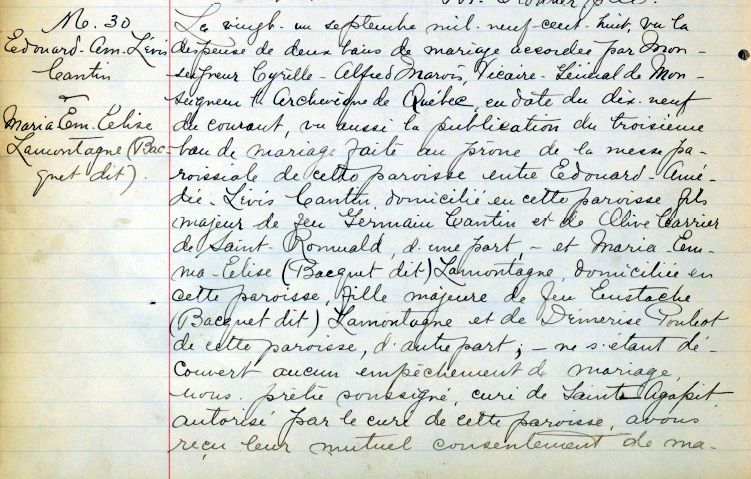 M. 30
Edouard-Am.-Lévis
Cantin
&
Maria Em. Elise
Lamontagne (Bac-
quet dit).
Le vingt-un septembre mil-neuf-cent-huit, vu la
dispense de deux bans de mariage accordée par Mon-
seigneur Cyrille-Alfred Marois, Vicaire-Général de Mon-
seigneur l'Archevêque de Québec, en date du dix-neuf
du courant, vu aussi la publication du troisième
ban de mariage faite au prône de la messe pa-
roissiale de cette paroisse entre Edouard-Amé-
dée-Lévis Cantin, domicilié en cette paroisse, fils
majeur de feu Germain Cantin et de Olive Carrier
de Saint-Romuald, d'une part, - et Maria-Em-
ma-Elise (Bacquet dit) Lamontagne, domiciliée en
cette paroisse, fille majeure de feu Eustache
(Bacquet dit) Lamontagne et de Démerise Pouliot
de cette paroisse, d'autre part; - ne s'étant dé-
couvert aucun empêchement de mariage,
nous, prêtre soussigné, curé de Sainte Agapit,
autorisé par le curé de cette paroisse, avons
reçu leur mutuel consentement de ma-